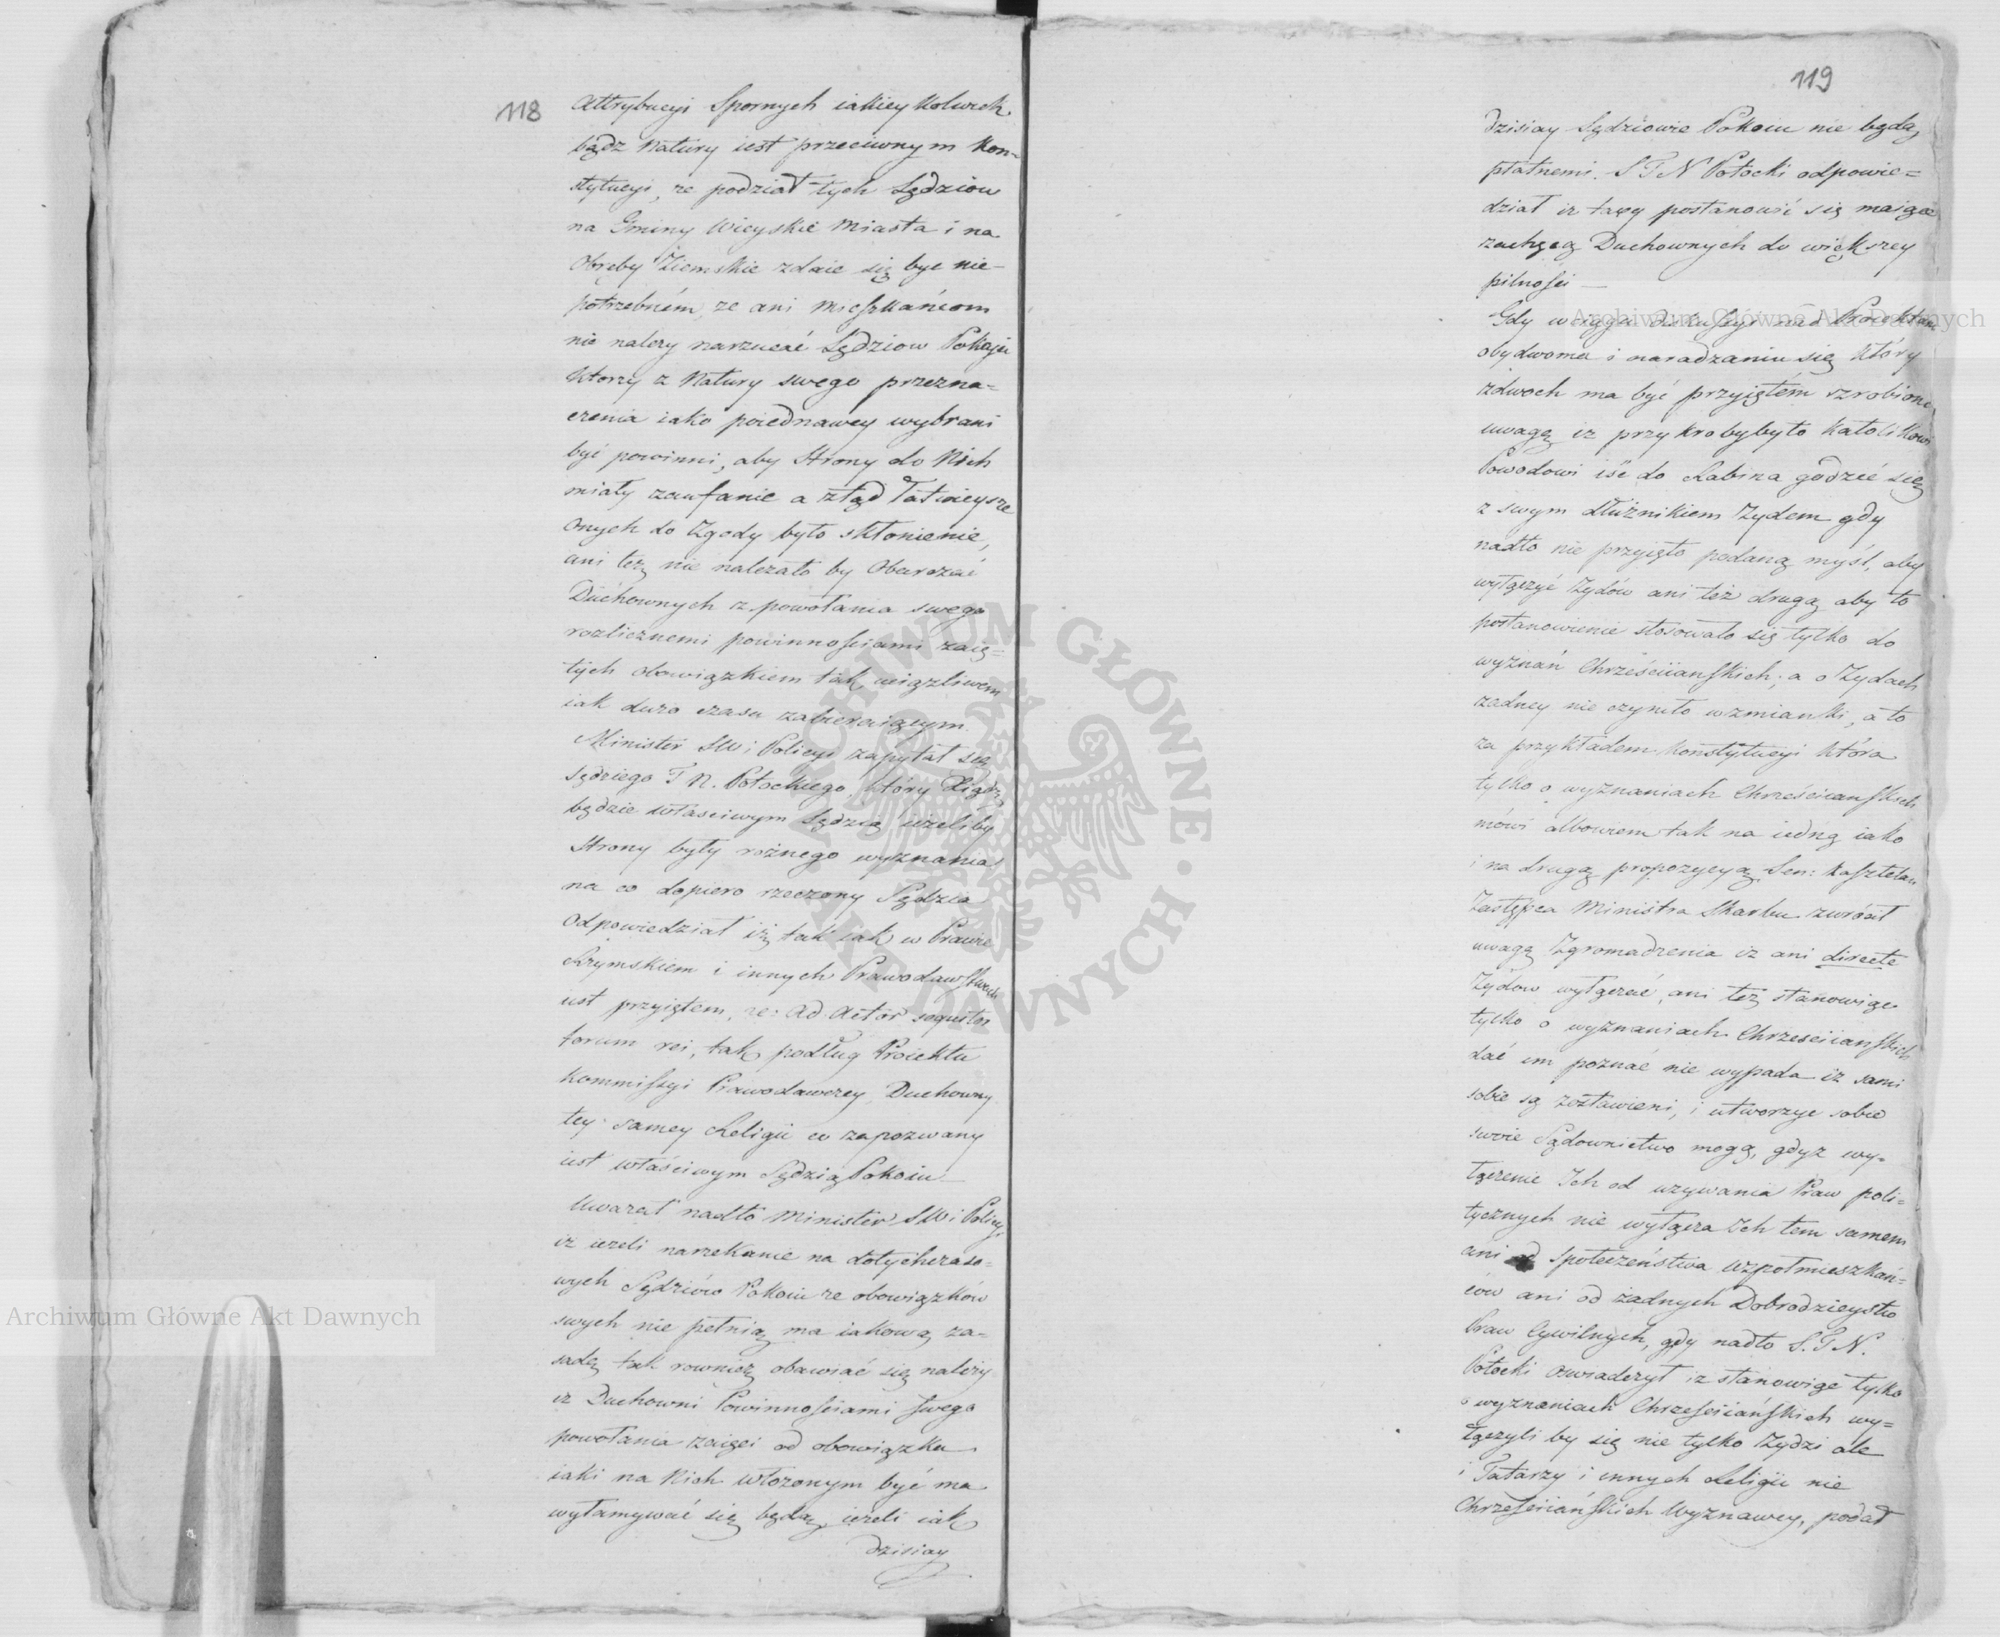 118
Attrybucyi Spornych iakiey kolwiek
bądz Natury iest przeciwnym Kon-
stytucyi, ze podział tych Sędziow
na Gminy Wieyskie Miasta i na
Obręby Ziemskie zdaie się byc nie-
potrzebném, ze ani Mieszkańcom
nie nalezy narzucać Sędziow Pokoju
ktorzy z Natury swego przezna-
czenia iako poiednawcy wybrani
być powinni, aby Strony do Nich
miały zaufanie a ztąd łatwieysze
Onych do Zgody było skłonienie,
ani też nie nalezało by Obarczać
Duchownych z powołania swego
rozlicznemi powinnościami zaię-
tych obowiązkiem tak uciązliwem
iak duzo czasu zabieraiącym.
Minister SW i Policyi zapytał się
Sędziego T N. Potockiego, który Xiądz
będzie właściwym Sędzią ieżeliby
Strony były rożnego wyznania?
na co dopiero rzeczony Sędzia
odpowiedział iż tak iak w Prawie
Rzymskiem i innych Prawodawstwach
iest przyiętem, ze: ad Actor sequitor
forum rei, tak podług Proiektu
Kommissyi Prawodawczey, Duchowny
tey samey Religii co zapozwany
iest właściwym Sędzią Pokoiu
Uwazał nadto Minister SW i Policyi
iz iezeli narzekanie na dotychczaso-
wych Sędziów Pokoiu ze obowiązków
swych nie pełnią ma iakową za-
sadę tak rownież obawiać się należy
iz Duchowni Powinnościami swego
powołania zaięci od obowiązku
iaki na Nich włozonym być ma
wyłamywać się będą, iezeli iak
dzisiay
119
dzisiay Sędziowie Pokoiu nie będą
płatnemi. S T N Potocki odpowie-
dział iz taxy postanowić się maiące
zachęcą Duchownych do większey
pilności —
Gdy w ciągu Diskussyi nad Proiektami
obydwoma i naradzaniu się który
zdwoch ma być przyiętém zrobiono
uwagę iz przykrobybyło Katolikowi
Powodowi iść do Rabina godzić się
z swym dłużnikiem Zydem gdy
nadto nie przyięto podaną myśl, aby
wyłączyć Żydów ani też drugą aby to
postanowienie stosowało się tylko do
wyznań Chrześciiańskich, a o Zydach
zadney nie czyniło wzmianki, a to
za przykładem Konstytucyi która
tylko o wyznaniach Chrześciiańskich
mówi albowiem tak na iedną iako
i na drugą propozycyą Sen: Kasztelan
Zastępca Ministra Skarbu zwrócił
uwagę Zgromadzenia iz ani directe
Żydow wyłączać, ani też stanowiąc
tylko o wyznaniach Chrzesciiańskich
dać im poznać nie wypada iż sami
sobie są zostawieni, i utworzyc sobie
swoie Sądownictwo mogą, gdyz wy-
łączenie Ich od uzywania Praw poli-
tycznych nie wyłącza Ich tem samem
ani od społeczeństwa Wzpołmieszkań-
ców ani od żadnych Dobrodzieystw
Praw Cywilnych, gdy nadto S. T N.
Potocki oswiadczył iz stanowiąc tylko
o wyznaniach Chrześciiańskich wy-
łączyli by się nie tylko Żydzi ale
i Tatarzy i innych Religii nie
Chrześciiańskich Wyznawcy, podał
Archiwum Główne Akt Dawnych
Archiwum Główne Akt Dawnych
ARCHIWUM GŁÓWNE • AKT DAWNYCH •